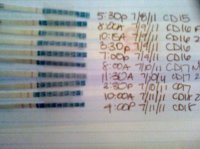 5:30p 7/8/11 CD15
8:00A 7/9/11 CD16
10:15A 7/9/11 CD16
3:30p 7/9/11 CD16
7:00p 7/9/11 CD16
8:00A 7/10/11 CD17
11:30A 7/10/11 CD17
2:30p 7/10/11 CD17
10:00A 7/11/11 CD18
4:00P 7/11/11 CD18